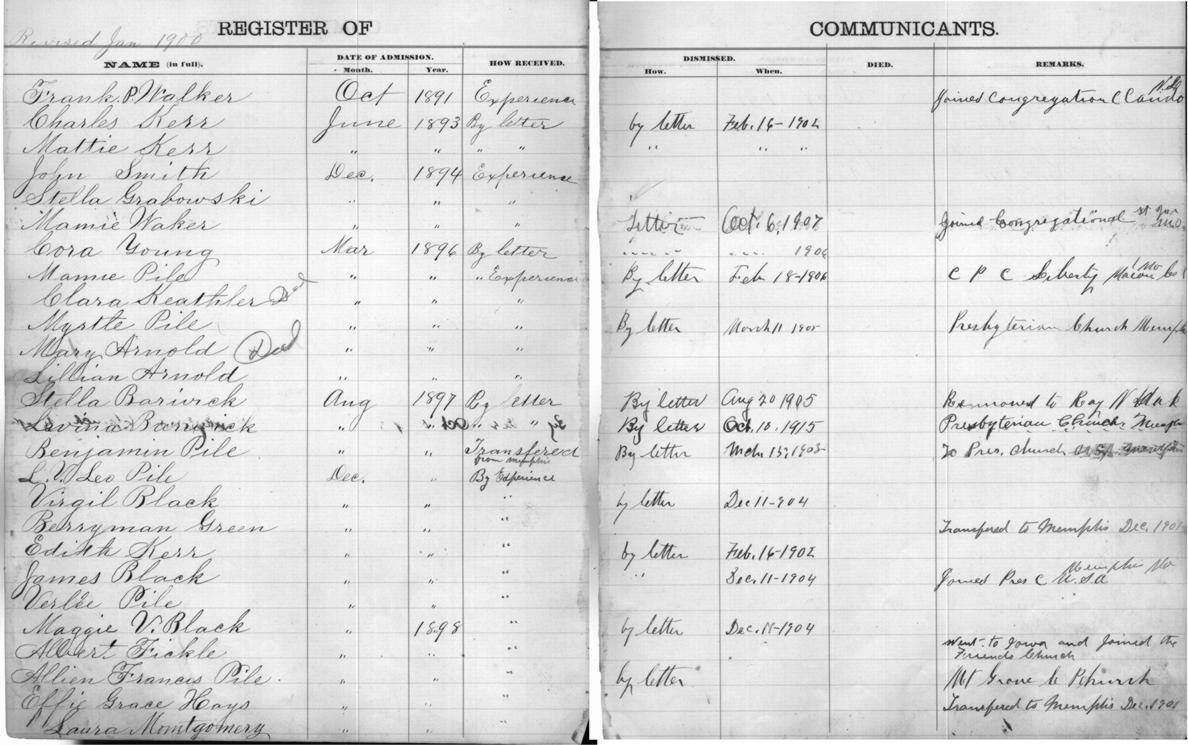 Revised Jan 1900
REGISTER OF COMMUNICANTS.
NAME (in full). DATE OF ADMISSION. Month. Year. HOW RECEIVED. DISMISSED. How. When. DIED. REMARKS.
Frank P. Walker Oct 1891 Experience Joined Congregation C
Charles Kerr June 1893 By letter by letter Feb. 16-1902
Mattie Kerr " " " " " " "
John Smith Dec. 1894 Experience
Stella Grabowski " " "
Mamie Waker " " " Letter Oct. 6, 1907 Joined Congregational
Cora Young Mar 1896 By letter 1906
Mamie Pile " " " Experience By letter Feb 18-1906 C P C Liberty Macon Co Mo
Clara Keathler Ded " " "
Myrtle Pile " " " By letter March 11 1905 Presbyterian Church Memph
Mary Arnold Ded " " "
Lillian Arnold " " "
Stella Barwick Aug 1897 By letter By letter Aug 20 1905 Removed to Ray N Dak
Barwick " " Oct " " By letter Oct. 10. 1915 Presbyterian Church Memph
Benjamin Pile " " Transfered from Memphis By letter Mch. 15, 1903 To Pres. church
L. V. Leo Pile Dec. " By Experience
Virgil Black " " " by letter Dec 11-904
Berryman Green " " " Transfered to Memphis Dec. 1901
Edith Kerr " " " by letter Feb. 16-1902
James Black " " " " Dec. 11-1904 Joined Pres C U.S.A Memphis Mo
Verlee Pile " " "
Maggie V. Black " 1898 " by letter Dec. 11-1904
Albert Fickle " " " Went to Iowa and Joined the Friends Church
Allien Francis Pile " " " by letter Mt Grove C P church
Effie Grace Hays " " " Transfered to Memphis Dec. 1901
Laura Montgomery " " "